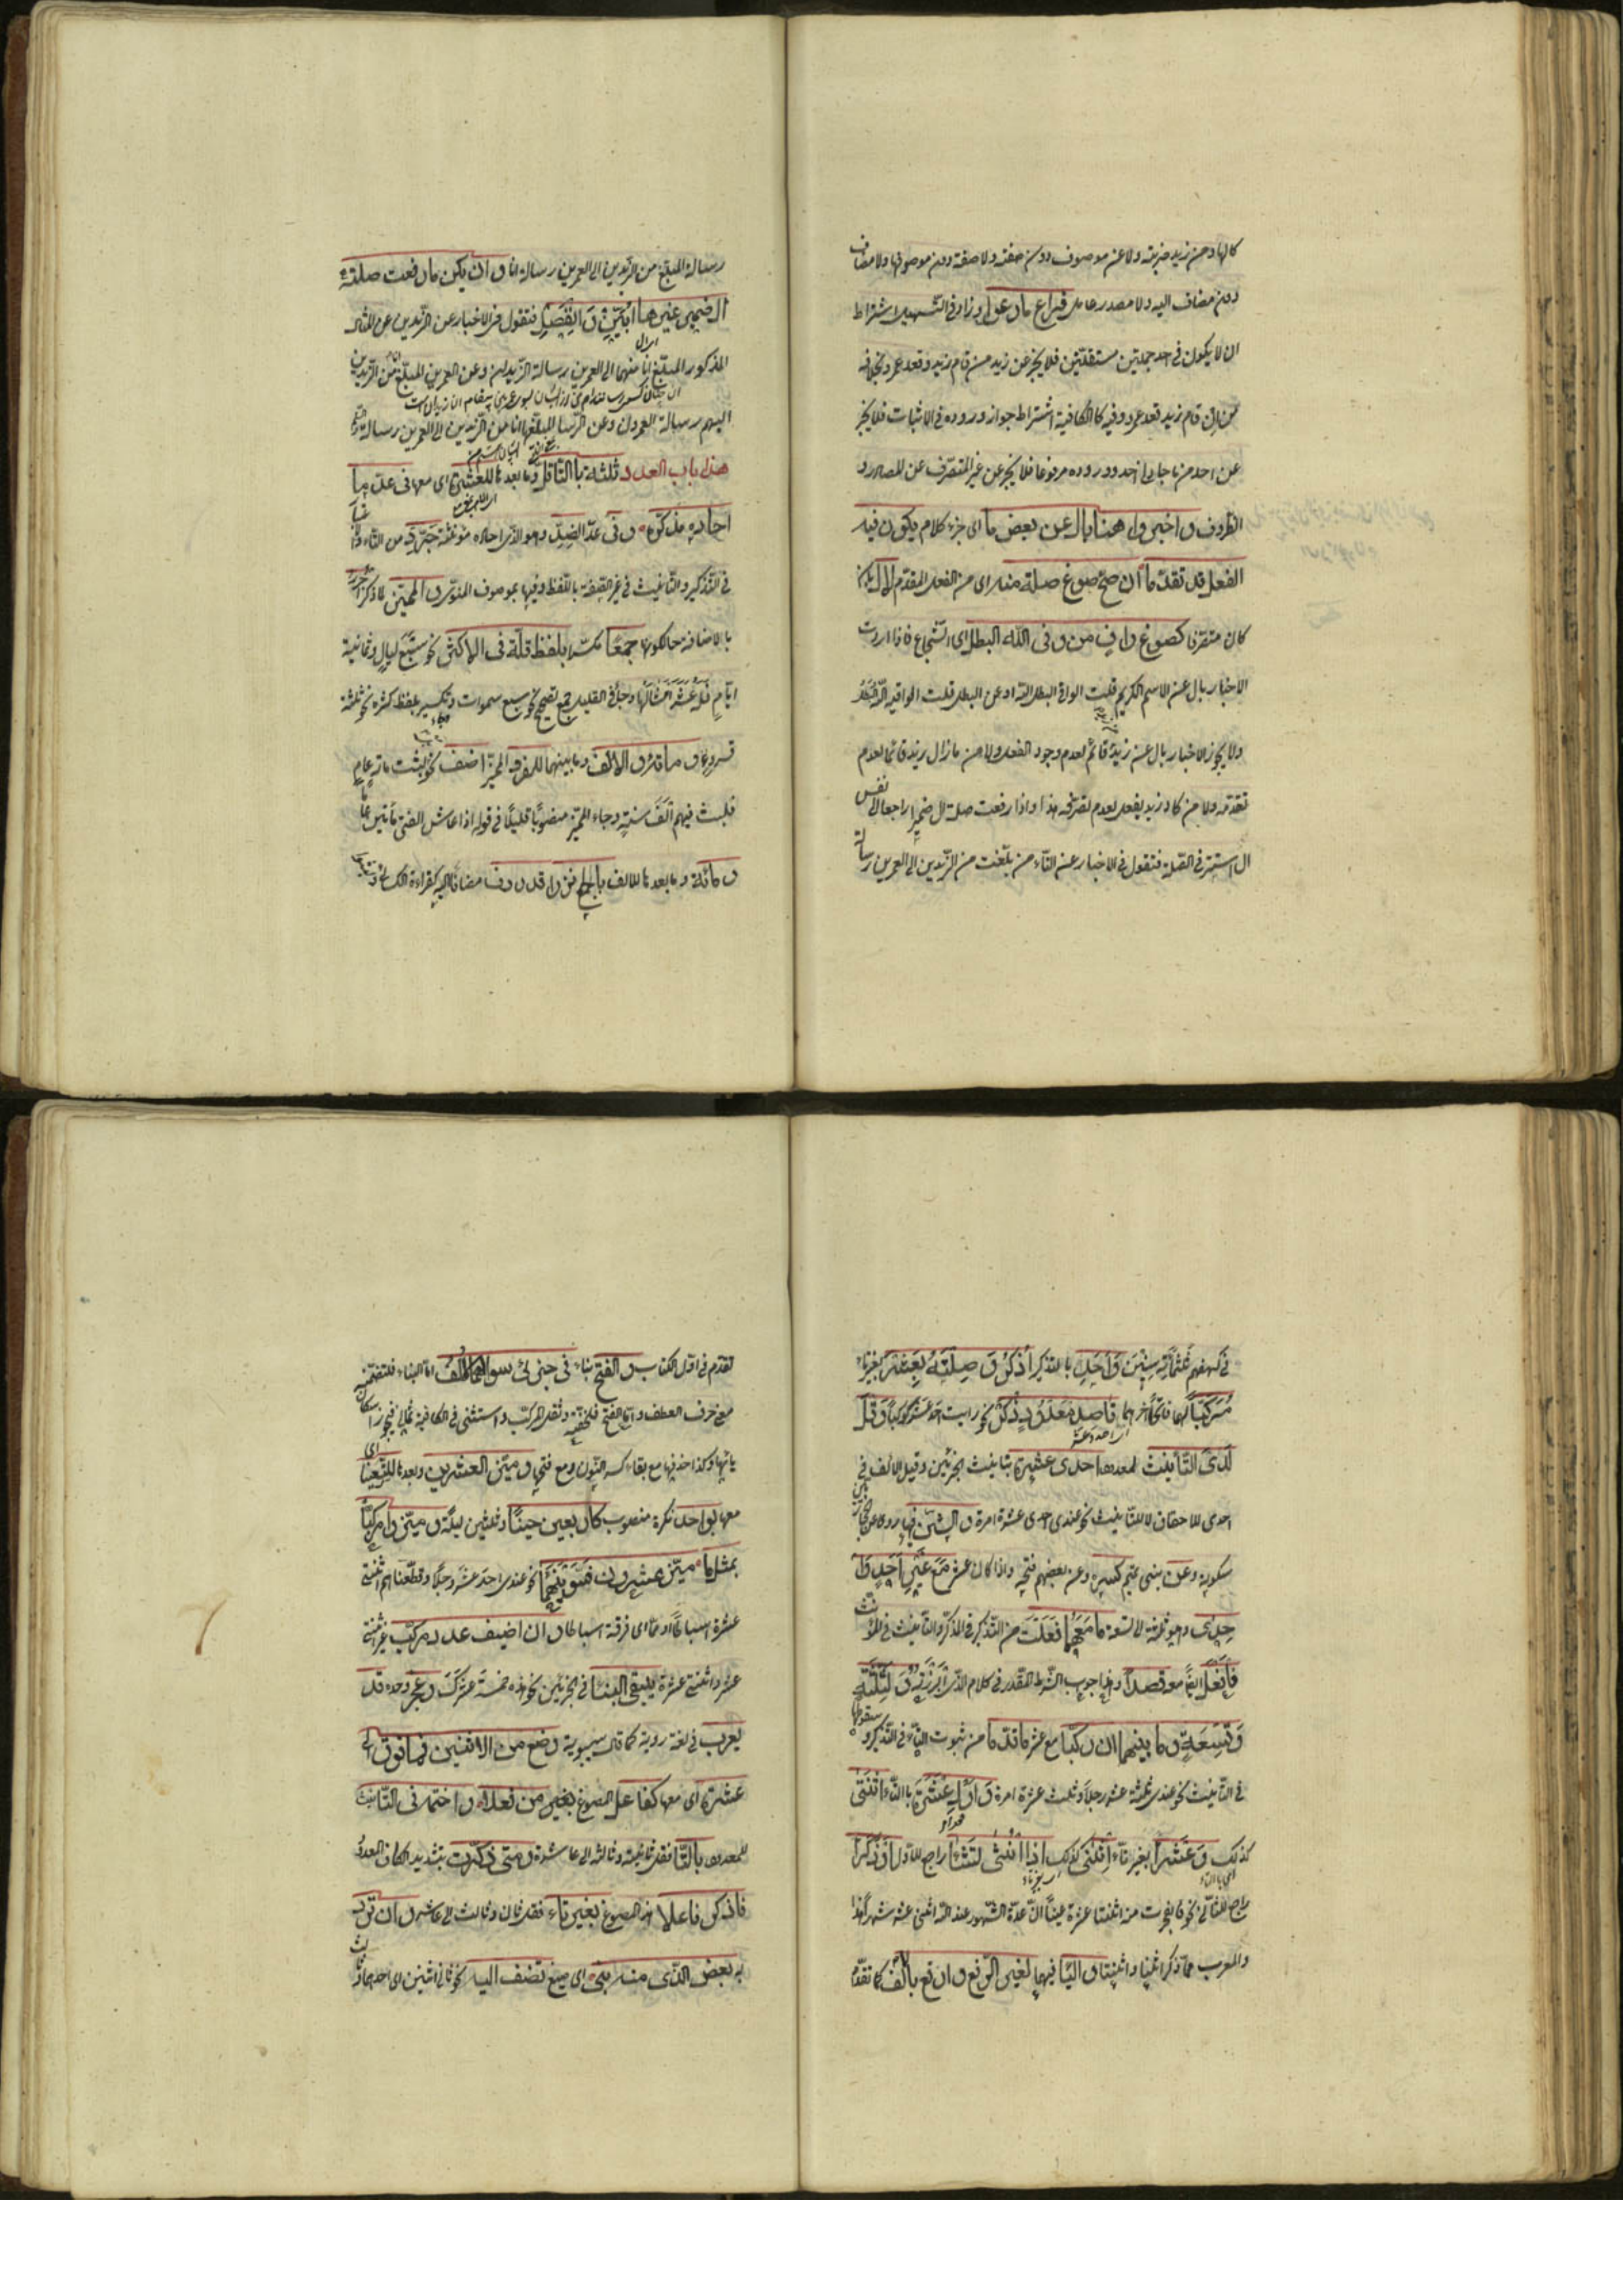 كالهاء من زيد ضربته ولا عن موصوف دون صفته ولا صفة دون موصوفها ولا مضاف
دون مضاف اليه ولا مصدر عامل فراع ما رعوا وزاد فى التسهيل اشتراط
ان لا يكون فى احد جملتين مستقلتين فلا يخبر عن زيد من قام زيد وقعد عمرو بخلافه
من ان قام زيد قعد عمرو وفيه كالكافية اشتراط جواز وروده فى الاثبات فلا يخبر
عن احد من ما جاءنى احد ووروده مرفوعا فلا يخبر عن غير المتصرف عن المصادر و
الظروف واخبروا هنا بال عن بعض ما اى جزء كلام يكون فيه
الفعل قد تقدما ان صح صوغ صلة منه اى من الفعل المقدم لال بان
كان متصرفا كصوغ واق من وقى الله البطل اى الشجاع فاذا اردت
الاخبار بال عن الاسم الكريم قلت الواقى البطل الله او عن البطل قلت الواقيه الله البطل
ولا يجوز الاخبار بال عن زيد قائم لعدم وجود الفعل ولا من ما زال زيد قائما لعدم
تقدمه ولا من كاد زيد يفعل لعدم تصرفه هذا واذا رفعت صلة ال ضميرا راجعا الى نفس
ال استتر فى الصلة فتقول فى الاخبار عن التاء من بلغت من الزيدين الى العمرين رسالة
رسالة المبلغ من الزيدين الى العمرين رسالة انا وان يكن ما رفعت صلة
ال ضمير غيرها ابين وانفصل فتقول فى الاخبار عن الزيدين من المثال
المذكور المبلغ انا منهما الى العمرين رسالة الزيدان وعن العمرين المبلغ انا من الزيدين
اليهم رسالة العمرون وعن الرسالة المبلغها انا من الزيدين الى العمرين رسالة
هذا باب العدد ثلثة بالتاء قل وما بعدها للعشرة اى معها فى عد ما
احاده مذكره وفى عد الضد وهو الذى احاده مؤنثة جرد من التاء
فى التذكير والتانيث فى غير الصفة باللفظ وفيها بموصوف المنوى والمميز لما ذكر اجرر
بالاضافة حالكونها جمعا مكسرا بلفظ قلة فى الاكثر نحو سبع ليال وثمانية
ايام فله عشر امثالها وجاء فى القليل جمع تصحيح نحو سبع سموات وتكسير بلفظ كثرة نحو ثلثة
قروء ومائة والالف وما بينهما للمفرد المميز اضف نحو بل لبثت مائة عام
فلبث فيهم الف سنة وجاء المميز منصوبا قليلا فى قوله اذا عاش الفتى مائتين عاما
ومائة وما بعدها للالف بالجمع نزرا قد ردف مضافا اليه كقراءة الكسائى
فى كهفهم ثلثمائة سنين واحد بالتذكير اذكر وصلنه بعشر بغير تاء
مركبا لهما فاتحا اخرهما قاصد معدود ذكر نحو رايت احد عشر كوكبا وقل
لدى التانيث لمعدود احدى عشرة بتانيث الجزئين وقيل الالف فى
احدى للالحاق لا للتانيث نحو عندى احدى عشرة امرة والشين فيها رووا عن
سكونه وعن بنى تميم كسره وعن بعضهم فتحه واذا كان عشر مع غير احد وا
حدى وهو ثلثة الى تسعة ما معهما فعلت من التذكير فى المذكر والتانيث فى المؤنث
فافعل ايضا معه قصدا وهذا جواب الشرط المقدر فى كلام الذى ابرزته ولثلثة
وتسعة وما بينهما ان ركبا مع عشر ما قدما من ثبوت التاء فى التذكير وسقوطها
فى التانيث نحو عندى ثلثة عشر رجلا وثلث عشرة امرة واول عشرة بالتاء اثنتى
كذلك وعشرا بغير تاء اثنى كذلك اذا انثى تشا راجع للاول او ذكرا
راجع للثانى نحو فانفجرت منه اثنتا عشرة عينا ان عدة الشهور عند الله اثنى عشر شهرا هذا
والمعرب مما ذكر اثنا واثنتا واليا فيهما لغير الرفع وارفع بالالف كما تقدم
تقدم فى اول الكتاب والفتح بناء فى جزئى سواهما الف اما البناء فلتضمنه
معنى حرف العطف واما الفتح فلخفته وثقل المركب واستثنى فى الكافية ثمانى فيجوز اسكان
يائها وكذا حذفها مع بقاء كسر النون ومع فتحها وميز العشرين وما بعدها للتسعين اى
معها بواحد نكرة منصوب كاربعين حينا وثلثين ليلة وميزوا مركبا
بمثل ما ميز عشرون فسوينهما نحو عندى احد عشر رجلا وقطعناهم اثنتى
عشرة اسباطا امما اى فرقة اسباطا وان اضيف عدد مركب غير اثنى
عشر واثنتى عشرة يبقى البنا فى الجزئين نحو هذه خمسة عشرك وعجز وحده قد
يعرب فى لغة ردية كما قال سيبويه وصغ من اثنين فما فوق الى
عشرة اى معها كفاعل المصوغ بغير من فعلا واختمه فى التانيث
للمعدود بالتاء فقل ثانية وثالثة الى عاشرة ومتى ذكرت بتشديد الكاف العدد
فاذكر فاعلا هذا المصوغ بغير تاء فقل ثان وثالث الى عاشر وان ترد
به بعض الذى منه بنى اى صيغ تضف اليه نحو ثانى اثنين اى احدهما وثالث